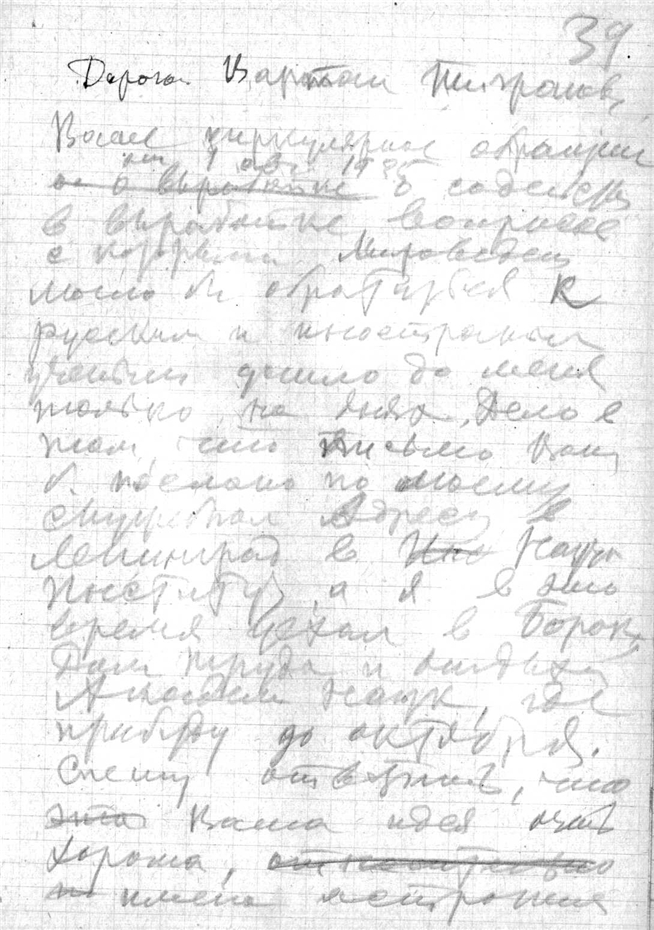 39
Дорогой Вартан Тигранов,
Ваше циркулярное обращение
от 1 авг 19
о выработке о содейств
в выработке вопросов
с которыми Мироведен
могло бы обратиться к
русским и иностранным
ученым дошло до меня
только на днях. Дело в
том, что письмо Ваш
б. послано по моему
служебном адресу в
Ленинград в Инс Научн
Институт, а я в это
время уехал в Борок,
Дом труда и отдыха
Академии Наук, где
пробуду до октября.
Спешу ответить, что
эта Ваша идея очень
хороша,
имена астроном